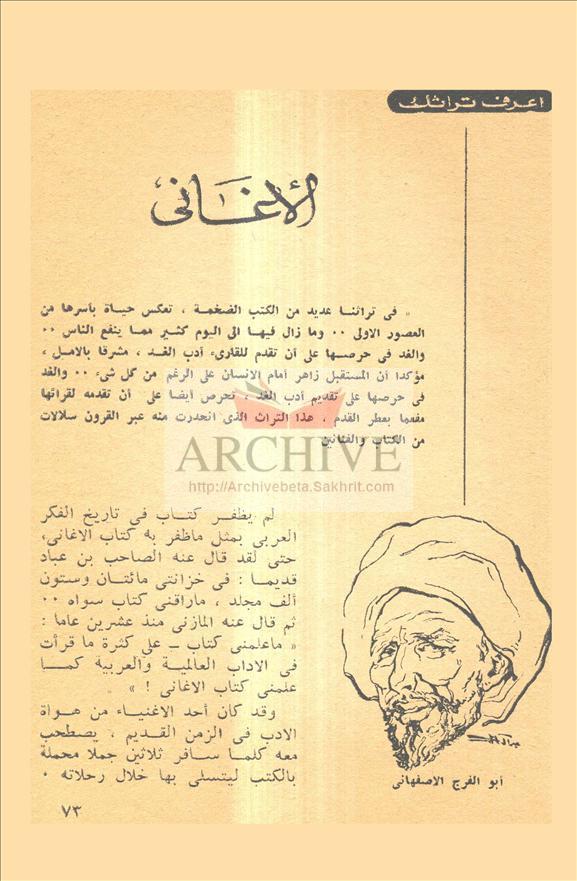 اعرف تراثك
الأغاني
« فى تراثنا عديد من الكتب الضخمة ، تعكس حياة بأسرها من
العصور الاولى ٠٠ وما زال فيها الى اليوم كثير مما ينفع الناس ٠٠
والغد فى حرصها على أن تقدم للقارىء أدب الغد ، مشرقا بالامل ،
مؤكدا أن المستقبل زاهر أمام الانسان على الرغم من كل شىء ٠٠ والغد
فى حرصها على تقديم أدب الغد ، تحرص أيضا على أن تقدمه لقرائها
مفعما بعطر القدم ، هذا التراث الذى انحدرت منه عبر القرون سلالات
من الكتاب والفنانين
ARCHIVE
http://Archivebeta.Sakhrit.com
لم يظفر كتاب فى تاريخ الفكر
العربى بمثل ماظفر به كتاب الاغانى،
حتى لقد قال عنه الصاحب بن عباد
قديما : فى خزانتى مائتان وستون
ألف مجلد ، ماراقنى كتاب سواه ٠٠
ثم قال عنه المازنى منذ عشرين عاما :
« ماعلمنى كتاب ــ على كثرة ما قرأت
فى الاداب العالمية والعربية كما
علمنى كتاب الاغانى ! »
وقد كان أحد الاغنياء من هواة
الادب فى الزمن القديم ، يصطحب
معه كلما سافر ثلاثين جملا محملة
بالكتب ليتسلى بها خلال رحلاته ٠
أبو الفرج الاصفهانى
٧٣